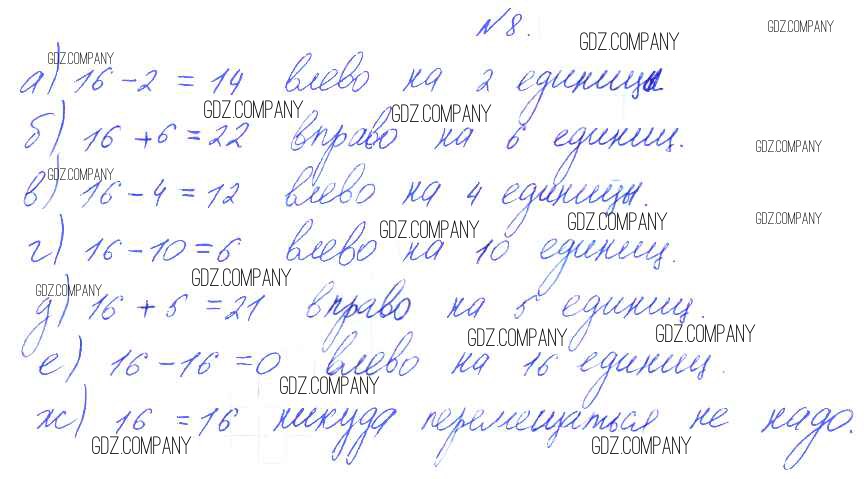 №8.
GDZ.COMPANY GDZ.COMPANY
GDZ.COMPANY
а) 16 - 2 = 14 влево на 2 единицы
GDZ.COMPANY GDZ.COMPANY
б) 16 + 6 = 22 вправо на 6 единиц.
GDZ.COMPANY
GDZ.COMPANY
в) 16 - 4 = 12 влево на 4 единицы.
GDZ.COMPANY GDZ.COMPANY GDZ.COMPANY
г) 16 - 10 = 6 влево на 10 единиц.
GDZ.COMPANY
GDZ.COMPANY
д) 16 + 5 = 21 вправо на 5 единиц.
GDZ.COMPANY GDZ.COMPANY
е) 16 - 16 = 0 влево на 16 единиц.
GDZ.COMPANY
ж) 16 = 16 никуда перемещаться не надо.
GDZ.COMPANY GDZ.COMPANY